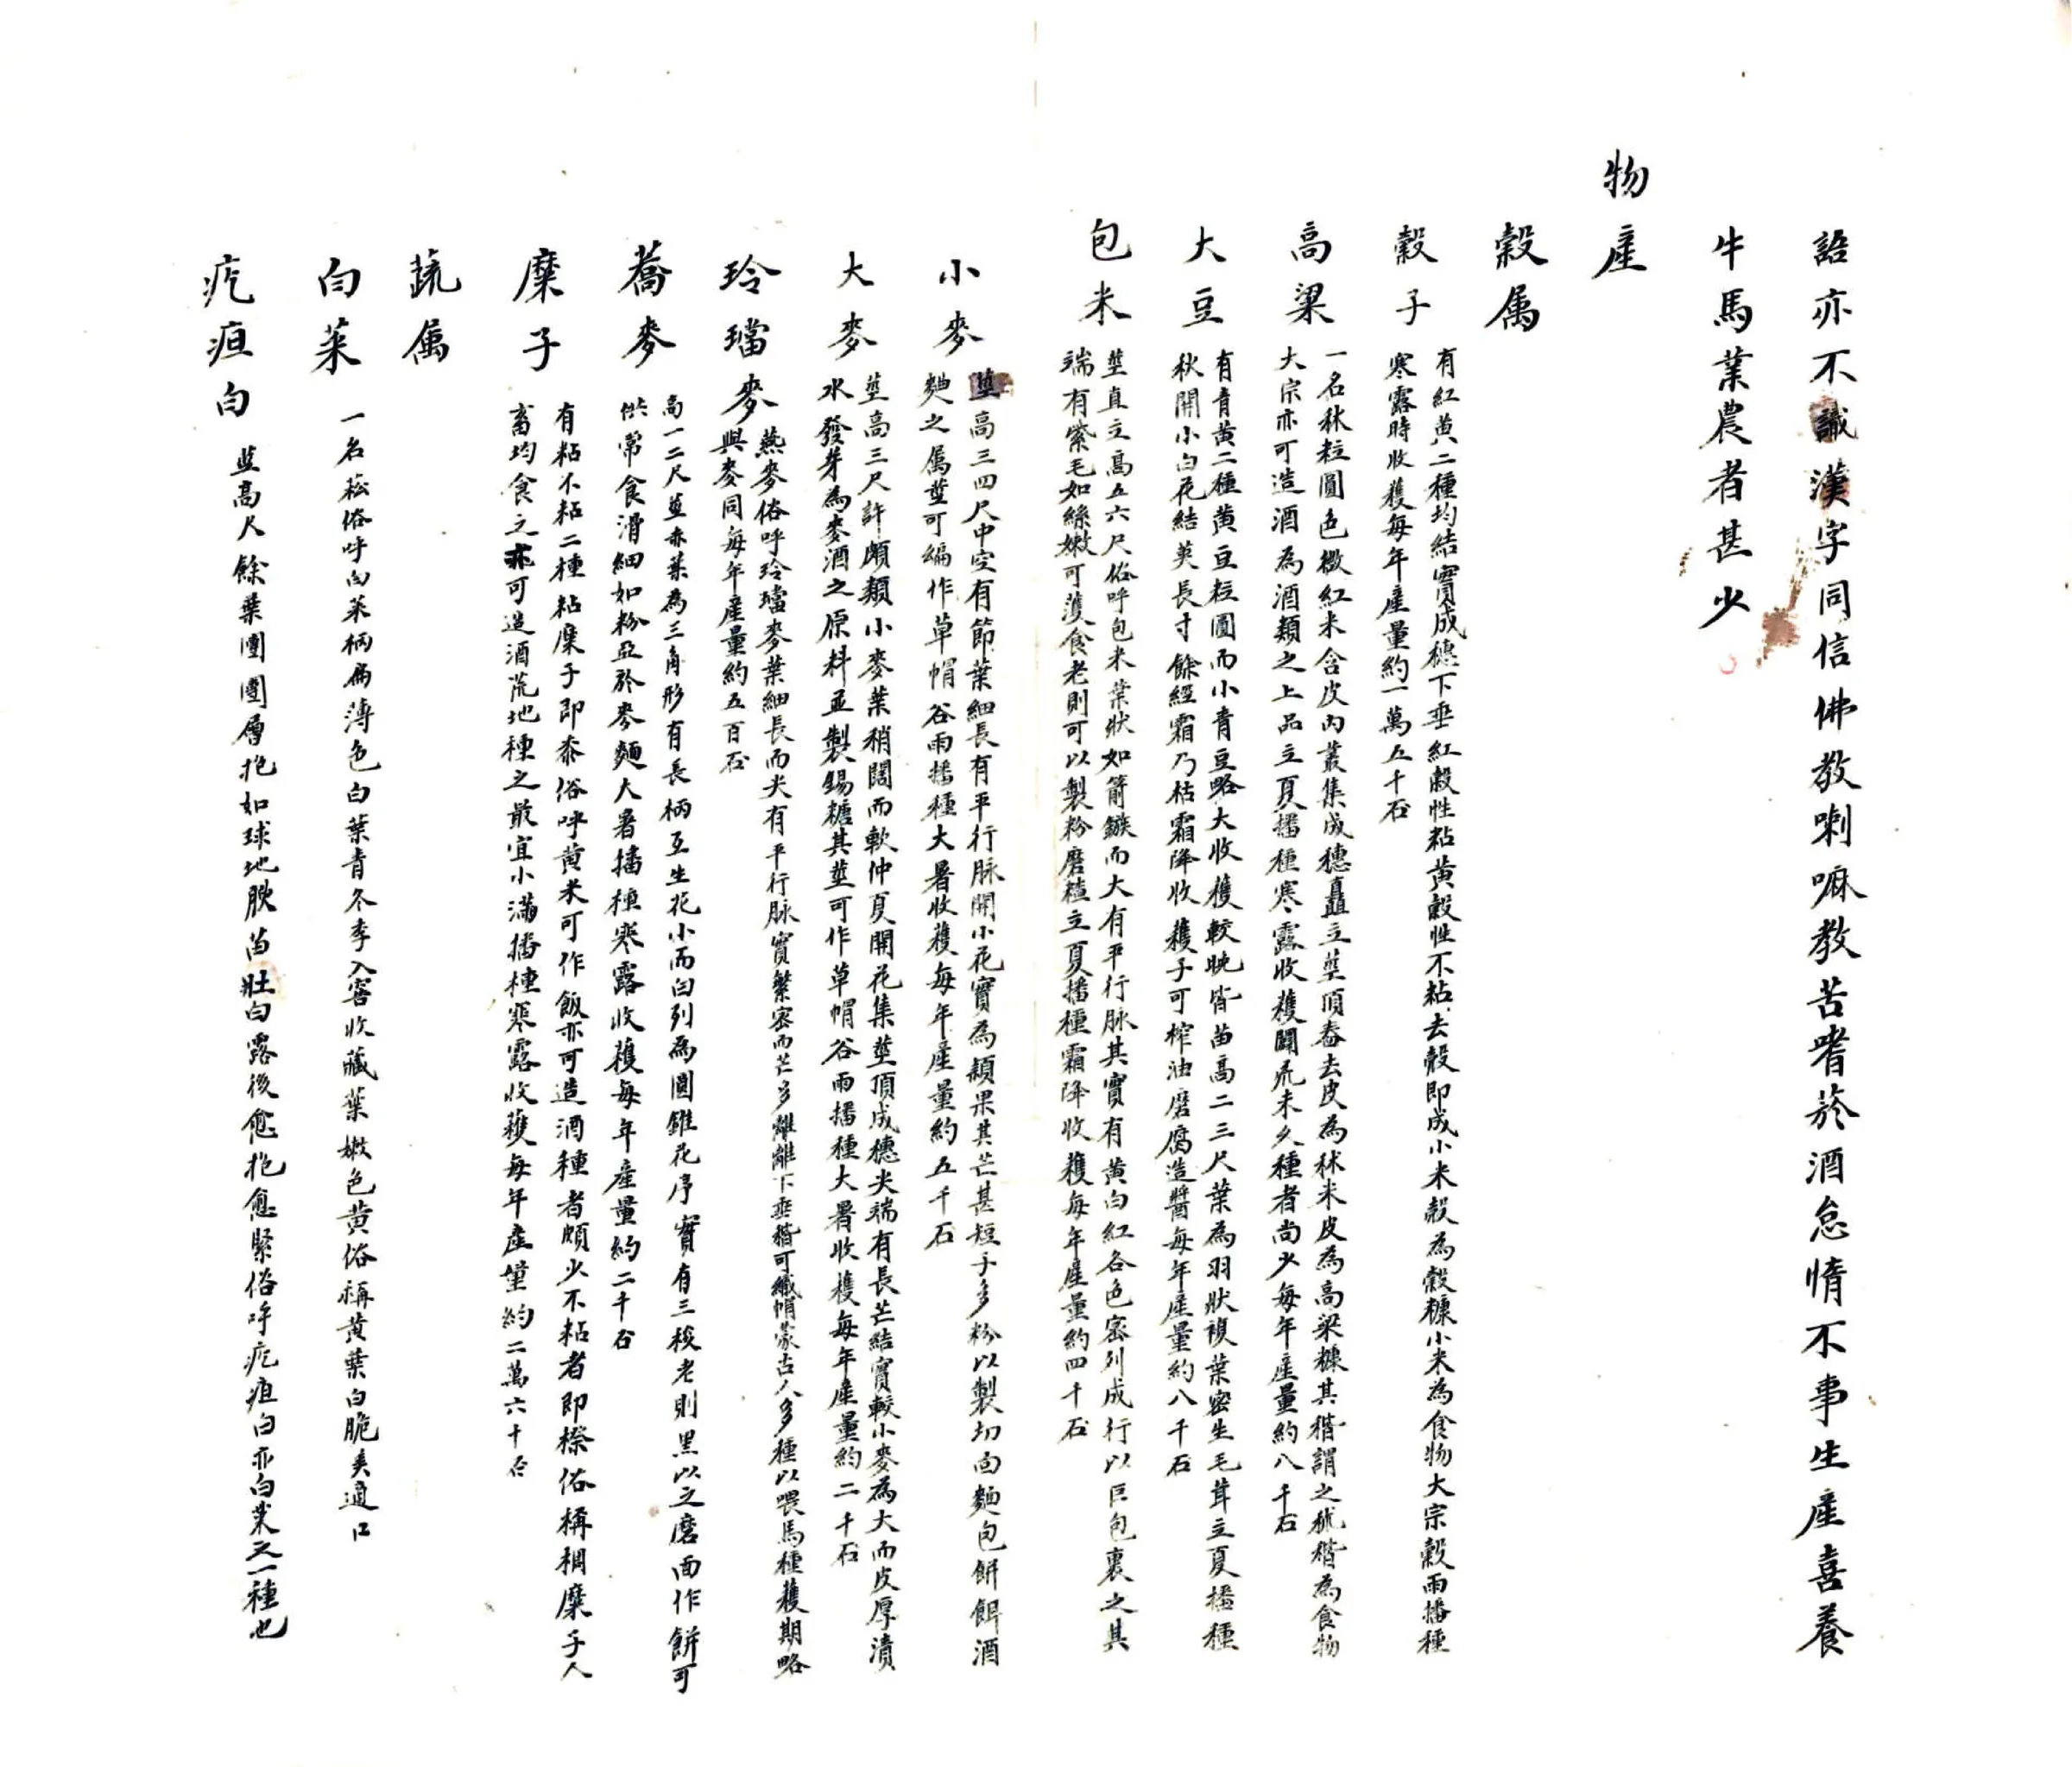 語亦不識漢字同信佛教喇嘛教苦嗜菸酒怠惰不事生產喜養
牛馬業農者甚少
物產
穀属
穀子
有紅黄二種均結實成穗下垂紅穀性粘黄穀性不粘去殼即成小米殼為穀糠小米為食物大宗穀雨播種
寒露時收獲每年產量約一萬五千石
高粱
一名秫粒圓色微紅米含皮內叢集成穗矗立莖頂舂去皮為秫米皮為高粱糠其稭謂之秫稭為食物
大宗亦可造酒為酒類之上品立夏播種寒露收獲開荒未久種者尚少每年產量約八千石
大豆
有青黄二種黄豆粒圓而小青豆略大收獲較晚皆苗高二三尺葉為羽狀複葉密生毛茸立夏播種
秋開小白花結英長寸餘經霜乃枯霜降收獲子可榨油磨腐造醬每年產量約八千石
包米
莖直立高五六尺俗呼包米葉狀如箭鏃而大有平行脉其實有黄白紅各色密列成行以巨包裏之其
端有紫毛如絲嫩可蒦食老則可以製粉磨𥻗立夏播種霜降收獲每年產量約四千石
小麥
莖高三四尺中空有節葉細長有平行脉開小花實為穎果其芒甚短子多粉以製切面麵包餅餌酒
麯之属莖可編作草帽谷雨播種大暑收獲每年產量約五千石
大麥
莖高三尺許頗類小麥葉稍闊而軟仲夏開花集莖頂成穗尖端有長芒結實較小麥為大而皮厚漬
水發芽為麥酒之原料並製錫糖其莖可作草帽谷雨播種大暑收獲每年產量約二千石
玲璫麥
燕麥俗呼玲璫麥葉細長而尖有平行脉實繁密而芒多離離下垂稭可織帽蒙古人多種以喂馬種獲期略
與麥同每年產量約五百石
蕎麥
高一二尺莖赤葉為三角形有長柄互生花小而白列為圓錐花序實有三棱老則黑以之磨面作餅可
供常食滑細如粉亞於麥麵大暑播種寒露收獲每年產量約二千石
糜子
有粘不粘二種粘糜子即黍俗呼黄米可作飯亦可造酒種者頗少不粘者即穄俗稱稠糜子人
畜均食之亦可造酒荒地種之最宜小滿播種寒露收獲每年產量約二萬六十石
蔬属
白菜
一名菘俗呼白菜柄扁薄色白葉青冬季入窖收藏葉嫩色黄俗稱黄葉白脆美適口
疙疸白
莖高尺餘葉團團層抱如球地腴苗壯白露後愈抱愈緊俗呼疙疸白亦白菜之一種也